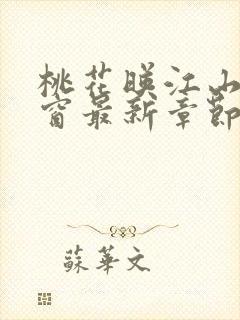 桃花暎江山
窗最新章節
蘇華文